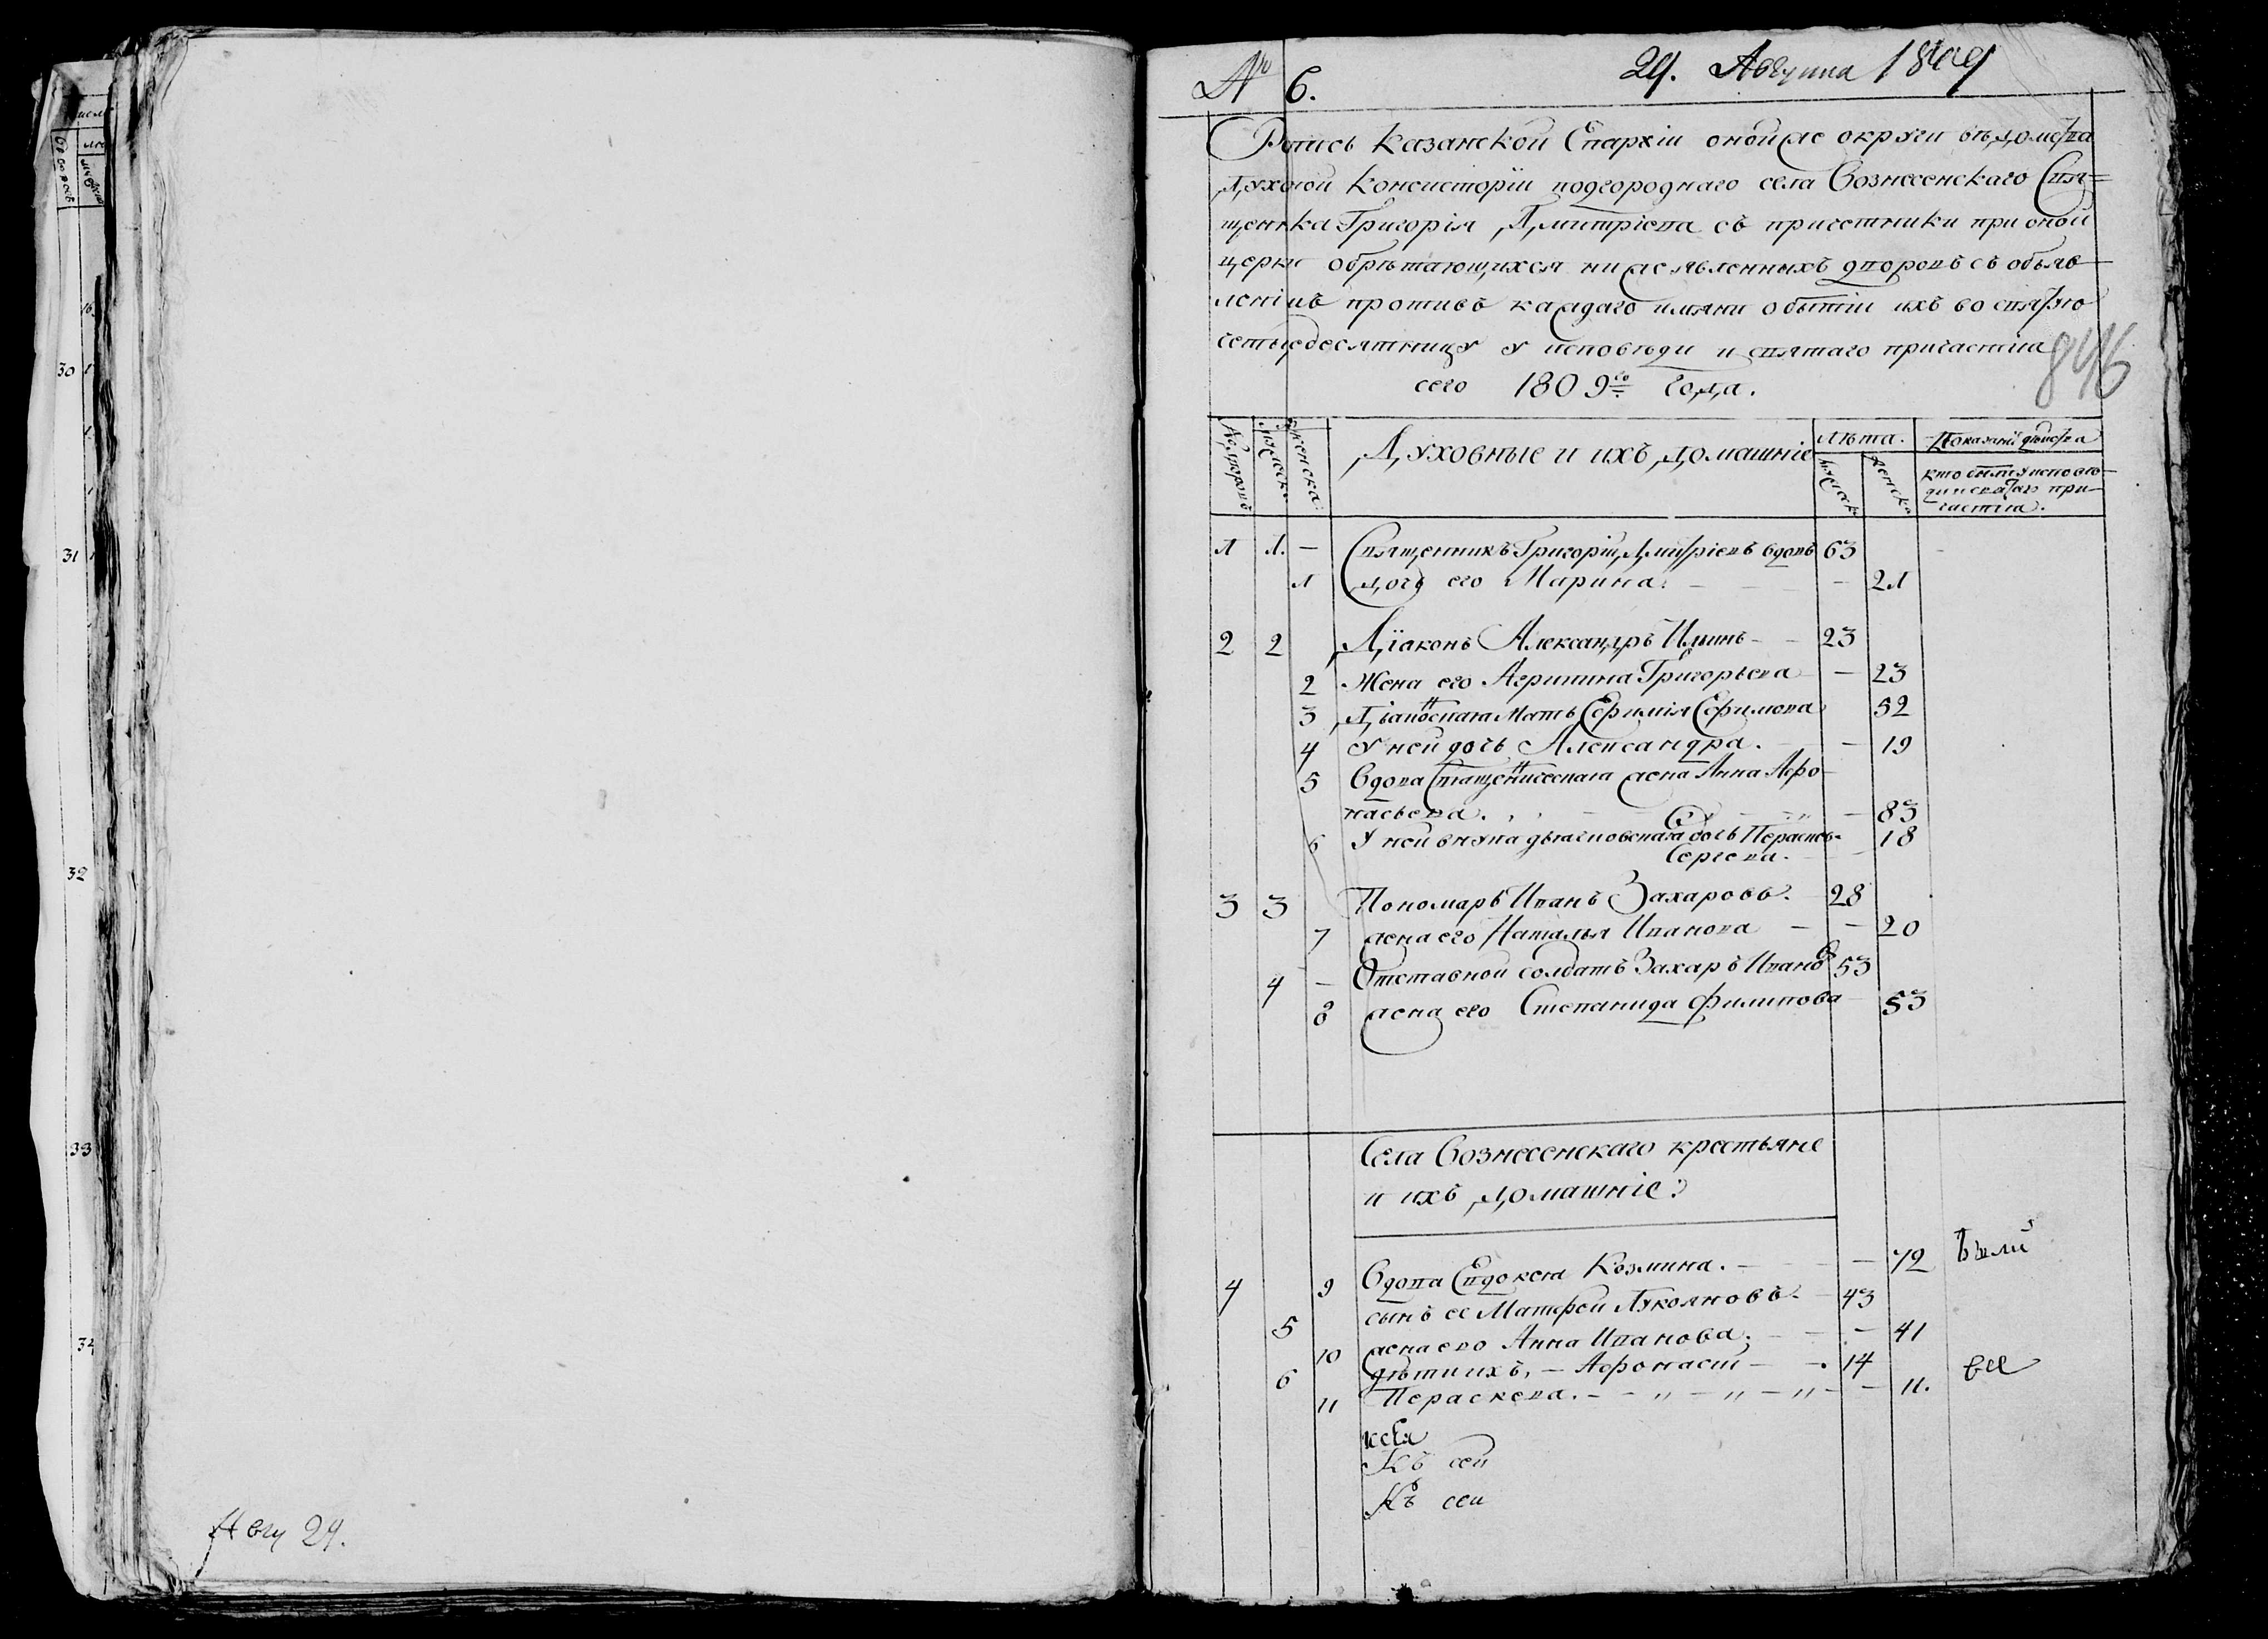 Авгу 29.
№ 6.
29. Августа 1809
Роспись Казанской Епархіи оной же округи вѣдомства
духовной Консисторіи подгороднаго села Вознесенскаго Свя=
щенника Григорія Дмитріева съ причетники при оной
церкви обрѣтающихся нижеявленныхъ дворовъ съ объяв-
леніемъ противъ каждаго имяни о бытіи ихъ во святую
четыредесятницу у исповѣди и святаго причастія
846
сего 1809го года.
Духовные и ихъ домашніе
лѣта.
мужеск
женск
кто былъ у исповѣ-
ди и святаго при-
частія.
1 1. — Священникъ Григорій Дмитріевъ вдовъ 63
1 дочь его Марина. — 21
2 2 Діаконъ Александръ Ильинъ — 23
2 Жена его Агрипина Григорьева — 23
3 Діаконская Мать Ефимія Ефимова 52
4 У ней дочь Александра. — 19
5 Вдова Священническая жена Анна Афо-
насьева. — 83
6 У ней внука дьячковская дочь Парасковь-
Сергева. 18
3 3 Пономарь Иванъ Захаровъ. 28
7 жена его Наталья Иванова — 20
4 — Отставной солдатъ Захаръ Ивановъ 53
8 жена его Степанида Филипова 53
Села Вознесенскаго крестьяне
и ихъ домашніе:
4 9 Вдова Евдокея Козмина. — 72 Были
5 сынъ ее Матфей Лукояновъ. 43
10 жена ево Анна Иванова. — 41
6 дѣти ихъ, — Афонасей — 14 все
11 Пераскева. — 11.
Къ сей
Къ сеи
30
31
32
33
34